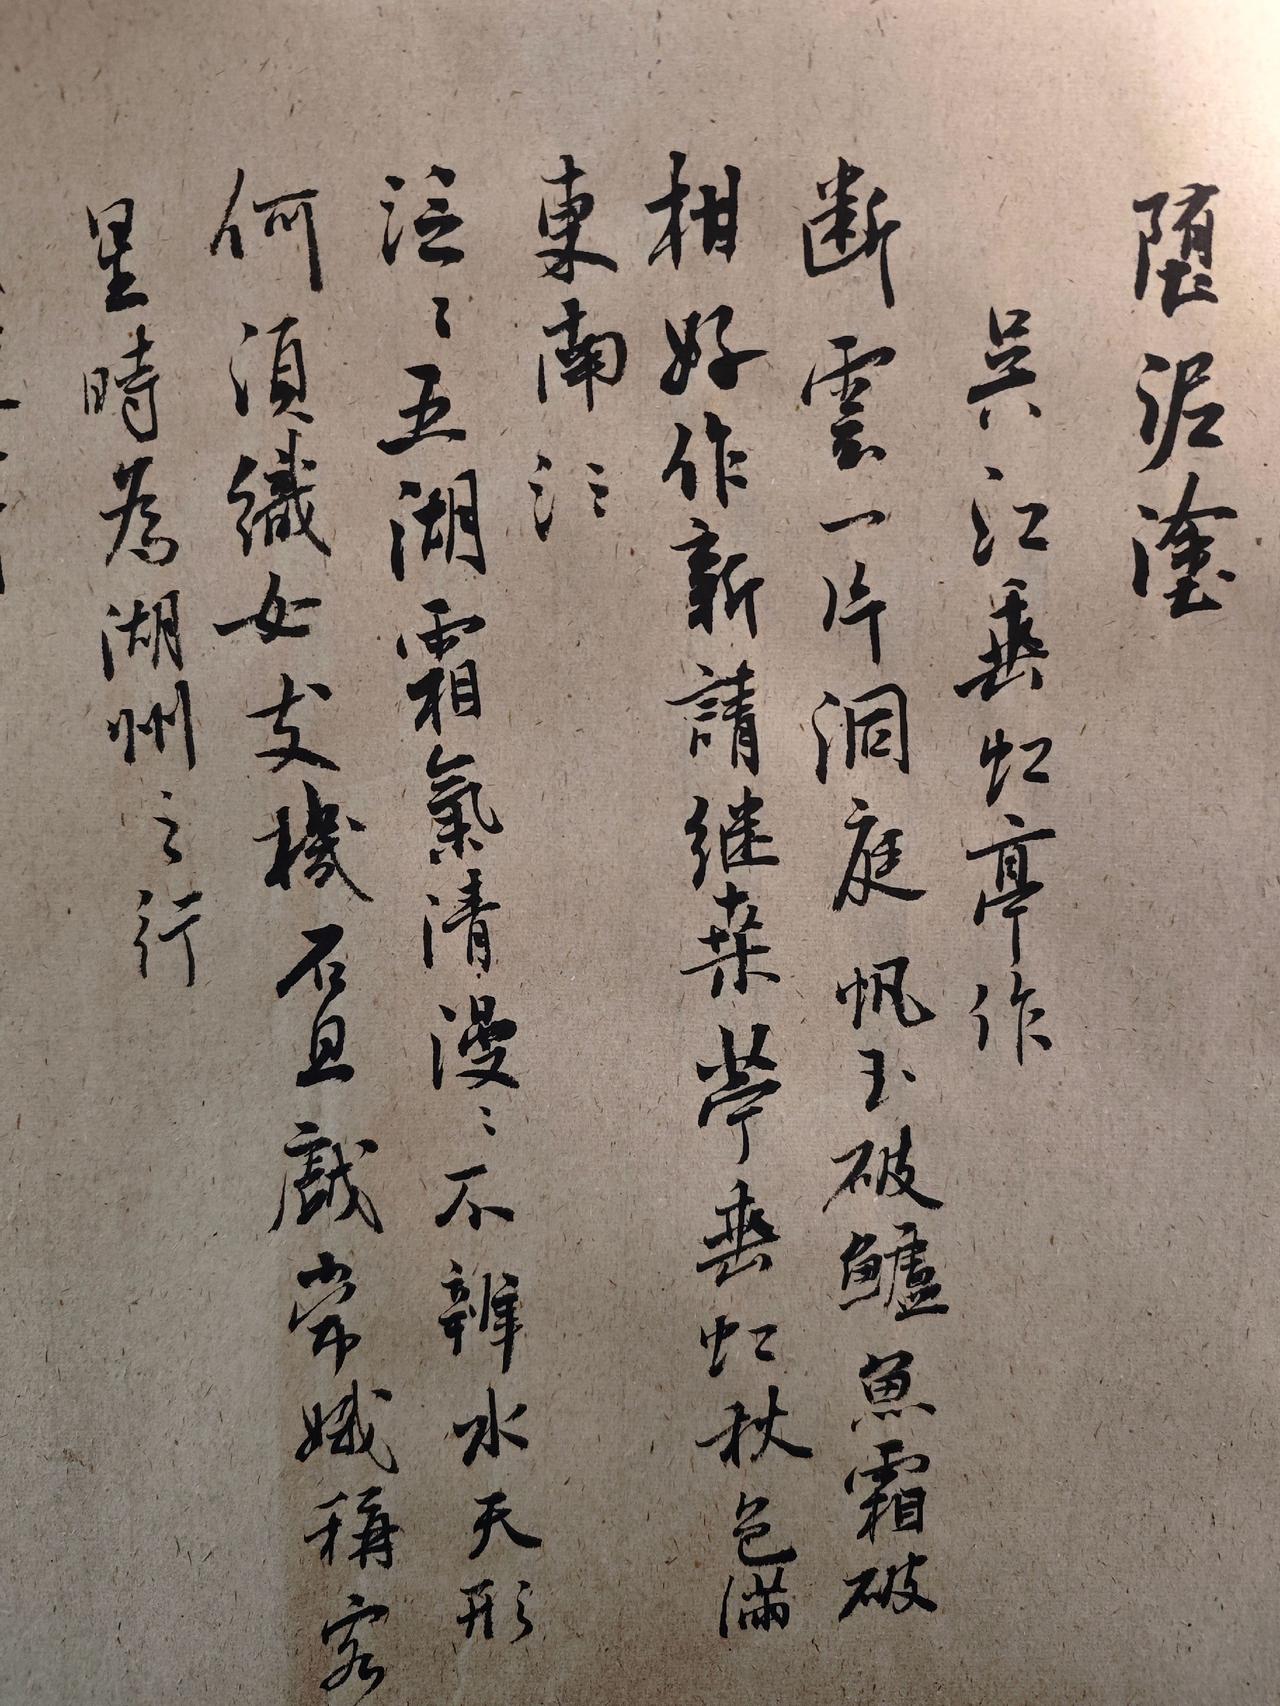 堕泥塗
吴江垂虹亭作
断雲一片洞庭帆玉破鱸魚霜破
柑好作新詩継桑苧垂虹秋色滿
東南 泛〻
泛〻五湖霜氣清漫〻不辨水天形
何須織女支機石且戲常娥稱客
星時為湖州之行